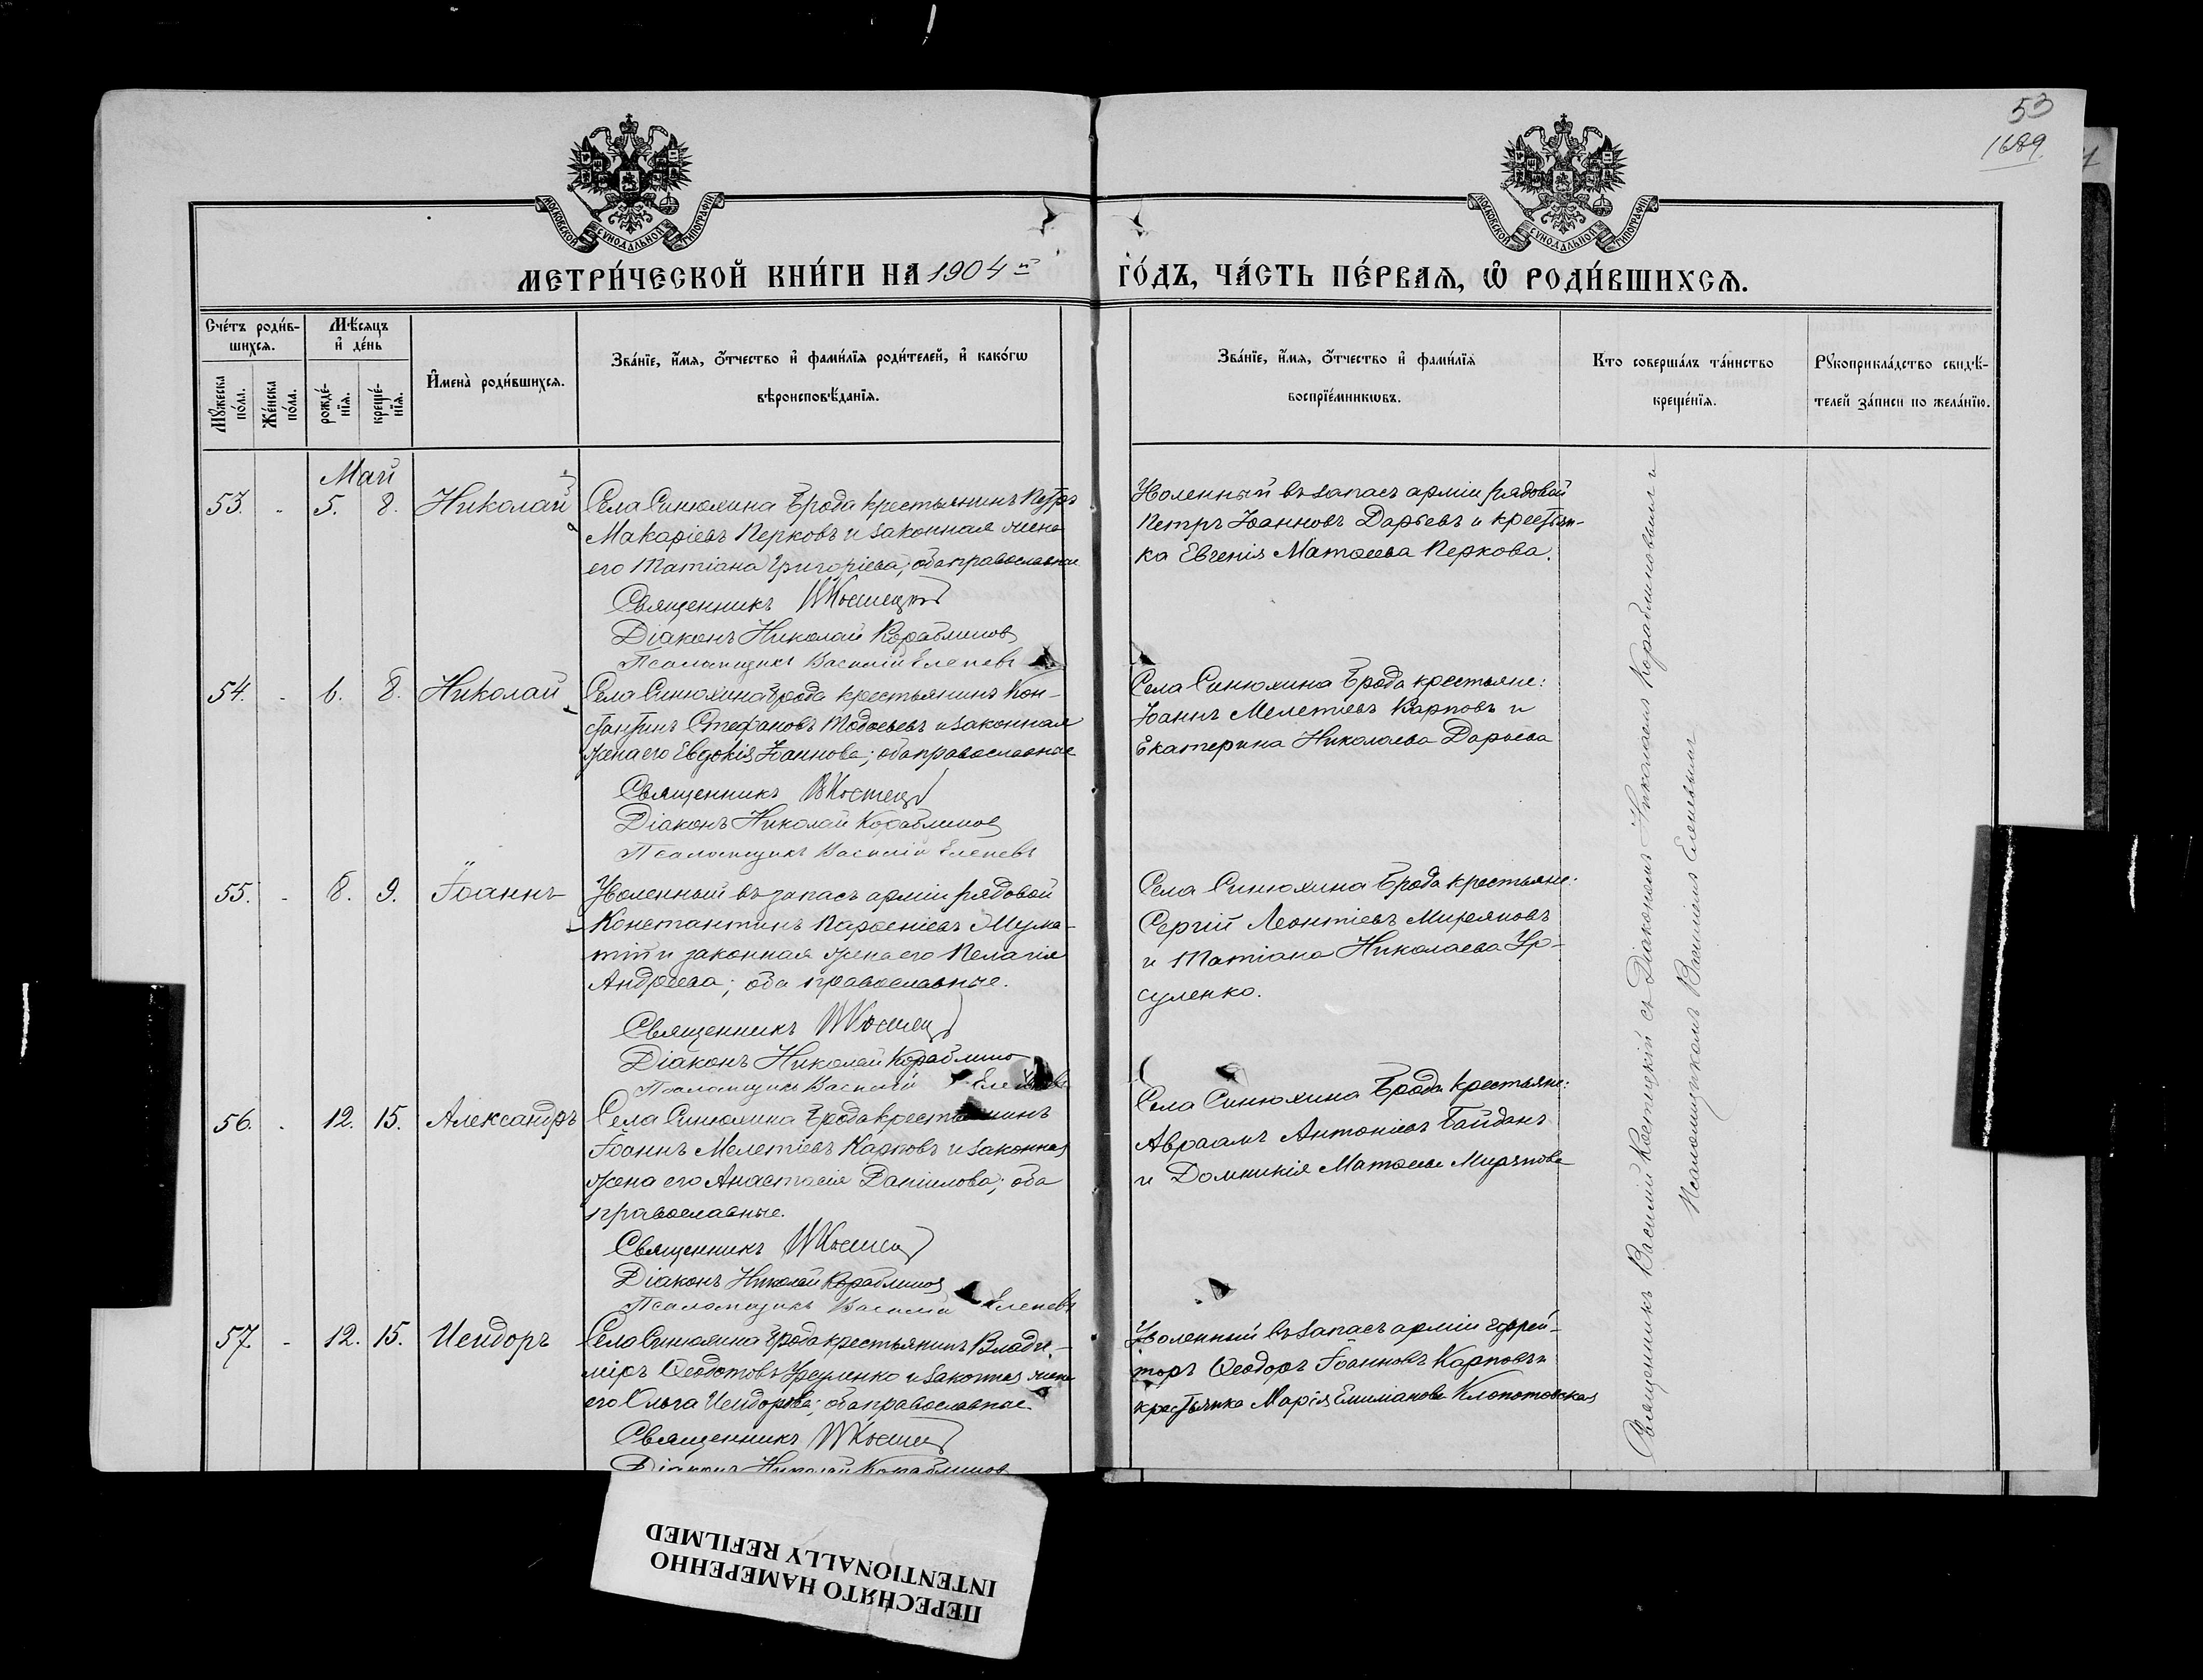 53
1689
МОСКОВСКОЙ СУНОДАЛЬНОЙ ТИПОГРАФІИ
МОСКОВСКОЙ СУНОДАЛЬНОЙ ТИПОГРАФІИ
МЕТРИ́ЧЕСКОЙ КНИ́ГИ НА 1904 й
ГО́ДЪ, ЧА́СТЬ ПЕ́РВАѦ, Ѽ РОДИ́ВШИХСѦ.
Сче́тъ роди́в-
шихсѧ.
Мѣсѧцъ
и҆ де́нь
Мꙋ́жеска по́ла.
Же́нска по́ла.
рожде́-
нїѧ.
креще́-
нїѧ.
И҆мена̀ роди́вшихсѧ.
Зва́нїе, и҆́мѧ, ѻ҆́тчество и҆ фами́лїѧ роди́телей, и҆ како́гѡ
вѣроисповѣ́данїѧ.
Зва́нїе, и҆́мѧ, ѻ҆́тчество и҆ фами́лїѧ
воспрїе́мникѡвъ.
Кто соверша́лъ та́инство
креще́нїѧ.
Рꙋкоприкла́дство свидѣ́-
телей за́писи по жела́нїю.
Май
53. - 5. 8. Николай
Села Синюхина Брода крестьянинъ Петръ
Макаріевъ Перковъ и законная жена
его Татіана Григоріева; оба православные
Священникъ ВКостецкій
Діаконъ Николай Кораблиновъ
Псаломщикъ Василій Еленевъ
Уволенный въ запасъ арміи рядовой
Петръ Іоанновъ Дарьевъ и крестьян-
ка Евгенія Матѳеева Перкова.
54. - 6. 8. Николай
Села Синюхина Брода крестьянинъ Кон-
стантинъ Стефановъ Тодосьевъ и законная
жена его Евдокія Іоаннова; оба православные
Священникъ ВКостецкій
Діаконъ Николай Кораблиновъ
Псаломщикъ Василій Еленевъ
Села Синюхина Брода крестьяне:
Іоаннъ Мелетіевъ Карповъ и
Екатерина Николаева Дарьева
55. - 8. 9. Іоаннъ
Уволенный въ запасъ арміи рядовой
Константинъ Парѳеніевъ
и законная жена его Пелагія
Андреева; оба православные.
Священникъ ВКостецкій
Діаконъ Николай Кораблиновъ
Псаломщикъ Василій Еленевъ
Села Синюхина Брода крестьяне:
Сергій Леонтіевъ Миряновъ
и Татіана Николаева Ур-
суленко.
56. - 12. 15. Александръ
Села Синюхина Брода крестьянинъ
Іоаннъ Мелетіевъ Карповъ и законная
жена его Анастасія Даніилова; оба
православные.
Священникъ ВКостецкій
Діаконъ Николай Кораблиновъ
Псаломщикъ Василій Еленевъ
Села Синюхина Брода крестьяне:
Авраамъ Антоніевъ Байданъ
и Домникія Матѳеева Мирянова
57. - 12. 15. Исидоръ
Села Синюхина Брода крестьянинъ Влади-
міръ Ѳеодотовъ Урсуленко и законная жена
его Ольга Исидорова; оба православные.
Священникъ ВКостецкій
Діаконъ Николай Кораблиновъ
Уволенный въ запасъ арміи ефрей-
торъ Ѳеодоръ Іоанновъ Карповъ и
крестьянка Марія Емиліанова Клопотовская
Священникъ Василий Костецкій съ Діакономъ Николаемъ Кораблиновымъ и
Псаломщикомъ Василіемъ Еленевымъ
ПЕРЕСНЯТО НАМЕРЕННО
INTENTIONALLY REFILMED